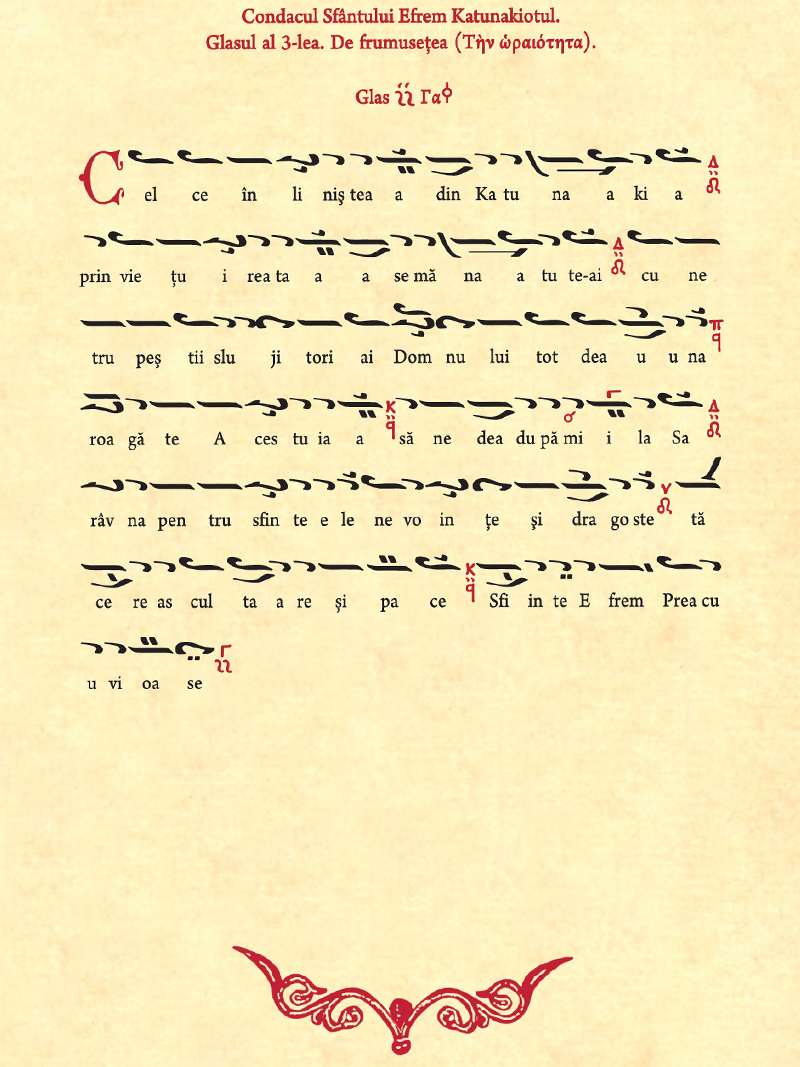 Condacul Sfântului Efrem Katunakiotul.
Glasul al 3-lea. De frumuseţea (Τὴν ὡραιότητα).
Glas Γα
C el ce în li niş tea a din Ka tu na a ki a
prin vie ţu i rea ta a a se mă na a tu te-ai cu ne
tru peş tii slu ji tori ai Dom nu lui tot dea u u na
roa gă te A ces tu ia a să ne dea du pă mi i la Sa
râv na pen tru sfin te e le ne vo in ţe şi dra go ste tă
ce re as cul ta a re şi pa ce Sfi in te E frem Prea cu
u vi oa se